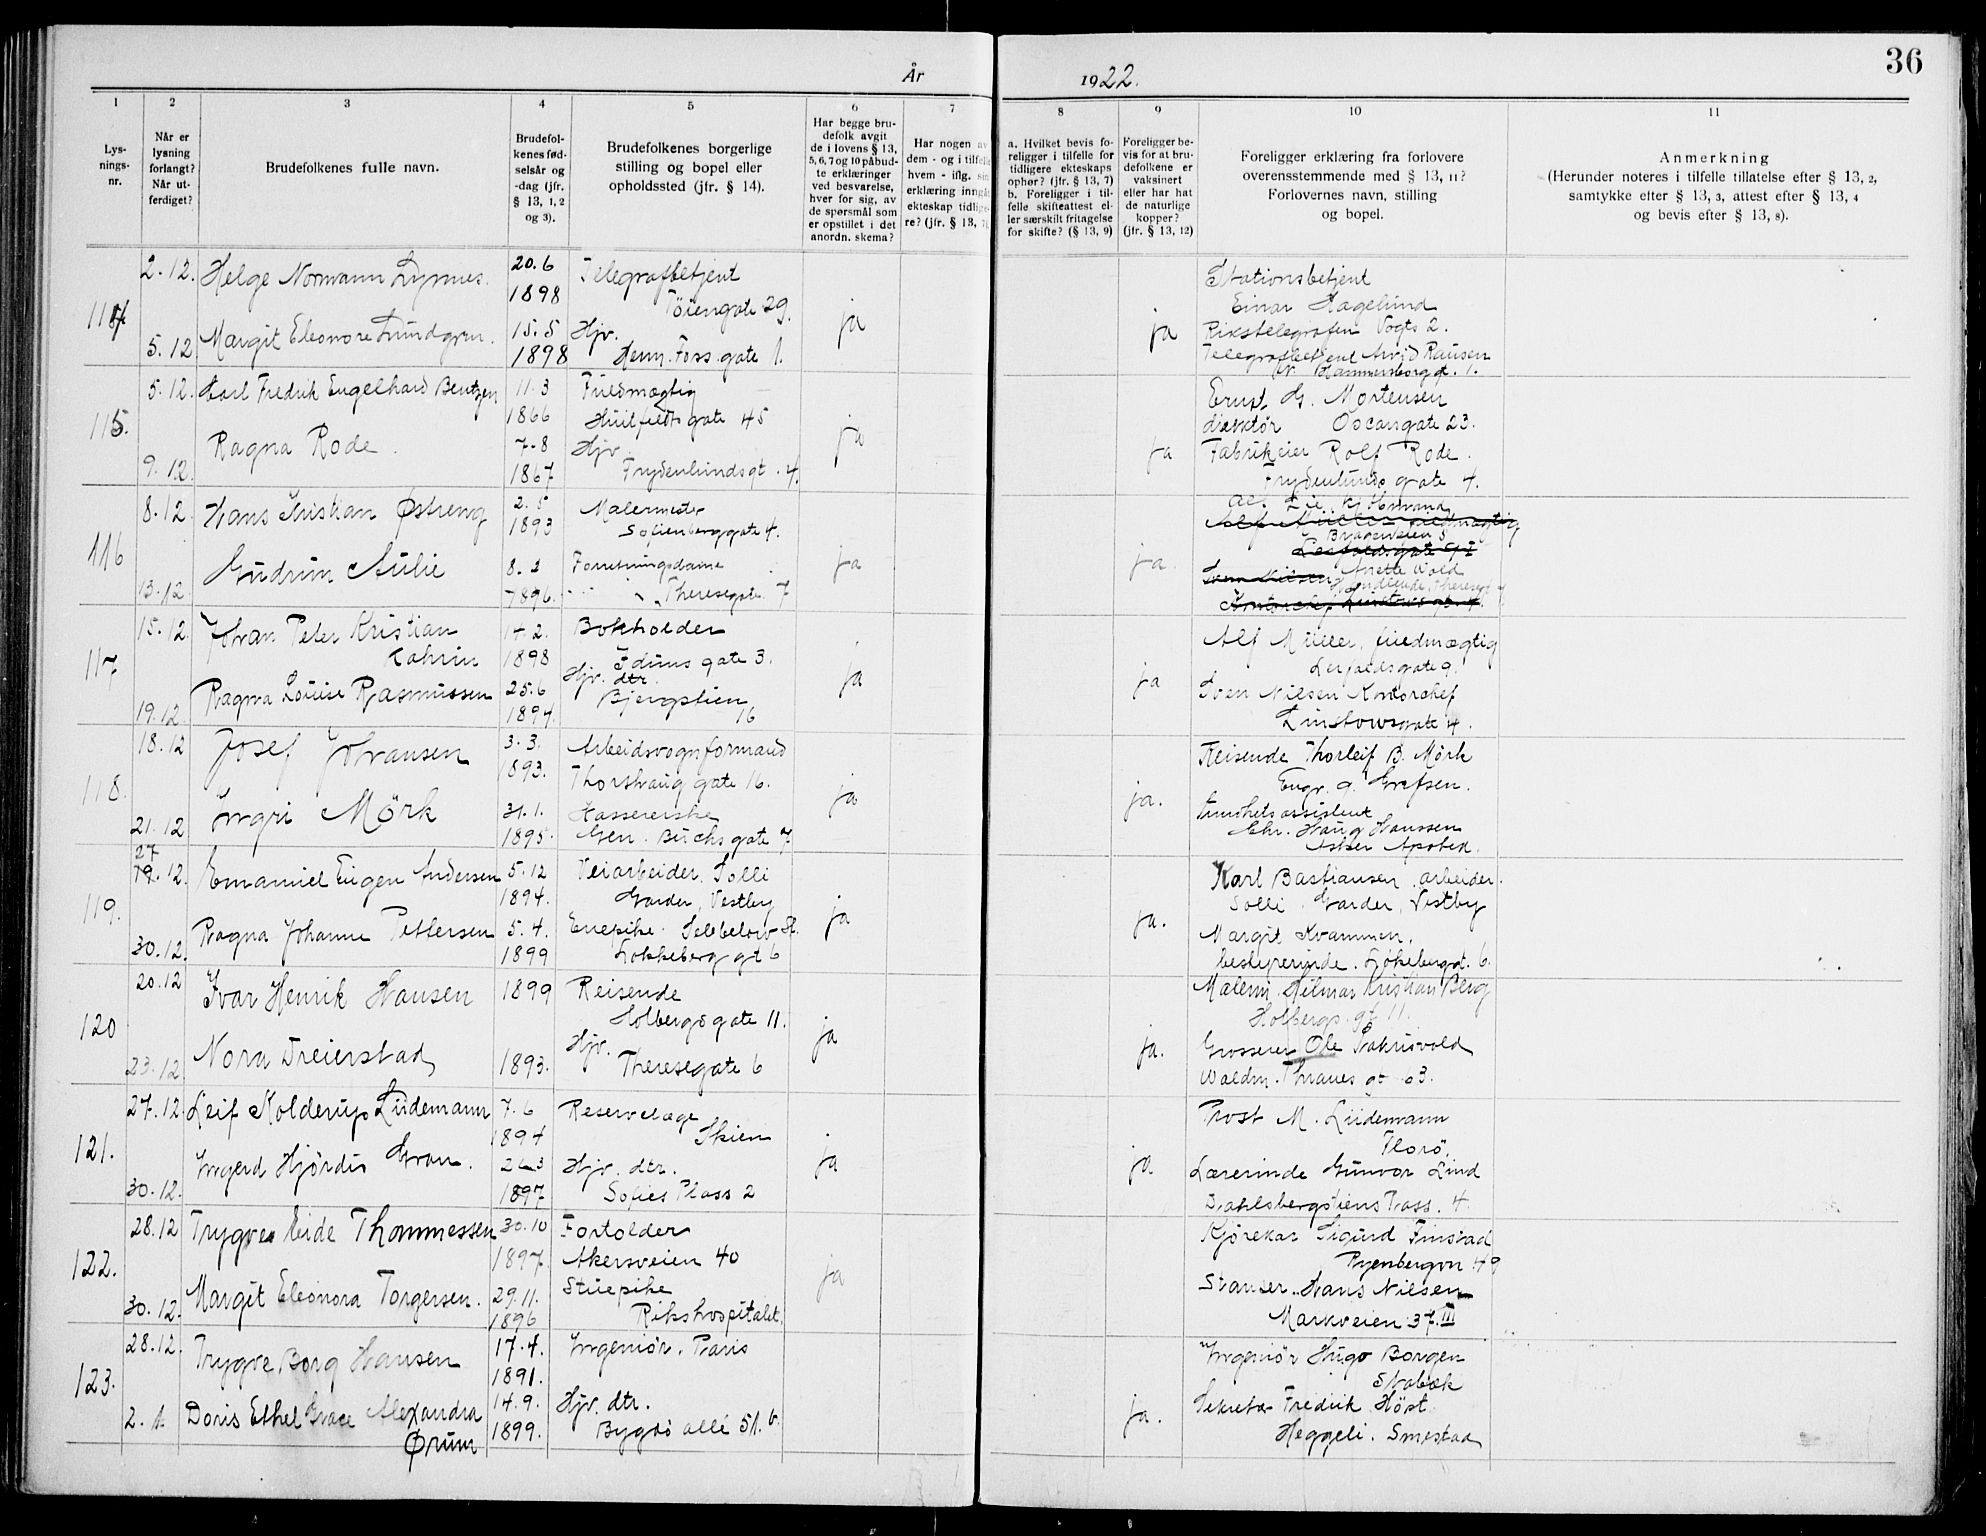 36
År 1922.
1 2 3 4 5 6 7 8 9 10 11
Lysningsnr.
Når er lysning forlangt? Når utferdiget?
Brudefolkenes fulle navn.
Brudefolkenes fødselsår og -dag (jfr. § 13, 1, 2 og 3).
Brudefolkenes borgerlige stilling og bopel eller opholdssted (jfr. § 14).
Har begge brudefolk avgit de i lovens § 13, 5, 6, 7 og 10 påbudte erklæringer ved besvarelse, hver for sig, av de spørsmål som er opstillet i det anordn. skema?
Har nogen av dem - og i tilfelle hvem - iflg. sin erklæring inngått ekteskap tidligere? (jfr. § 13, 7)
a. Hvilket bevis foreligger i tilfelle for tidligere ekteskaps ophør? (jfr. § 13, 7) b. Foreligger i tilfelle skifteattest eller særskilt fritagelse for skifte? (§ 13, 9)
Foreligger bevis for at brudefolkene er vaksinert eller har hat de naturlige kopper? (jfr. § 13, 12)
Foreligger erklæring fra forlovere overensstemmende med § 13, 11? Forlovernes navn, stilling og bopel.
Anmerkning
(Herunder noteres i tilfelle tillatelse efter § 13, 2, samtykke efter § 13, 3, attest efter § 13, 4 og bevis efter § 13, 8).
2.12. Helge Normann Lynnes. 20.6 1898 Telegrafbetjent Töiengate 29. ja ja Stationsbetjent
Einar Hagelund
5.12 Margit Eleonore Lundgren. 15.5 1898 Hjv. Henm. Foss. gate 1. Rikstelegrafen Vogts 2.
Telegrafbetjent Arvid
Hammersborg gt. 1.
115. 5.12. Karl Fredrik Engelhard Bentzen 11.3 1866 Fuldmægtig Huitfeldts gate 45 ja ja Ernst G. Mortensen
direktør Oscarsgate 23.
9.12. Ragna Rode. 7-8 1867 Hjv. Frydenlundsgt. 4. Fabrikeier Rolf Rode.
Frydenlunds gate 4.
116 8.12 Hans Kristian Østreng 2.5 1893 Malermester Sofienberggate 4. ja ja.
13.12 Gudrun Aulie 8. 1896. Forretningsdame Theresegate 7 Anette Wold
117. 15.12. Johan Peter Kristian 14.2. 1898 Bokholder Iduns gate 3. ja ja Alf Müller, fuldmægtig
19.12. Ragna Louise Rasmussen 25.6 1897. Hjv. dtr. Bjergstien 16 Sven Nilsen Kontorchef
Linstowsgate 4.
118. 18.12 Josef Johansen 3.3. 1893. Arbeidsvognformand gate 16. ja ja. Reisende Thorleif B. Mörk
Engv. 9. Grefsen.
21.12 Ingri Mörk 31.1. 1895. Kassererske Gen. Birchs gate 7 Sundhetsassistent
Chr. Haug Hanssen
Asker Apotek.
119. 27 19.12. Emanuel Eugen Andersen 5.12 1894. Veiarbeider. Solli Garder, Vestby ja ja. Karl Bastiansen arbeider.
Solli Garder, Vestby
30.12. Ragna Johanne Pettersen 5.4. 1899 Enepike. Lokkeberg gt 6 Margit Kvammen,
bestyrerinde. Lökebergt. 6.
120 20.12 Ivar Henrik Hansen 1899 Reisende Holbergsgate 11. ja ja. Malerm. Hilmar Kristian Berg
Holbergs gt 11.
23.12 Nora Dreierstad 1893. Hjv. Theresegate 6 Grosserer Ole
Waldm. Thranes gt 63.
121. 27.12 Leif Kolderup Lüdemann 7.6 1894 Reservelæge Skien ja ja Prost M. Lüdemann
Florö,
30.12. Ingerd Hjördis Gran. 1897 Hjv. dtr. Sofies Plass 2 Lærerinde Gunvor Lind
Dahlsbergstiens Pass. 4
122. 28.12 Trygve Eide Thommessen 30.10 1897 Fortolder Akersveien 40 ja Kjörekar Sigurd Finstad
Ryenbergvn 49
30.12. Margit Eleonora Torgersen. 29.11. 1896 Stuepike Rikshospitalet. Stanser. Hans Nilsen
Markveien 37.III
123. 28.12. Trygve Borg Hansen 17.4. 1891. Ingeniör. Paris ja. Ingeniör Hugo Borgen
Stabæk
2.1. Doris Ethel Grace Alexandra Ørum 14.9. 1899. Hjv. dtr. Bygdö allé 51.b. Sekretær Fredrik Höst.
Heggeli. Smestad